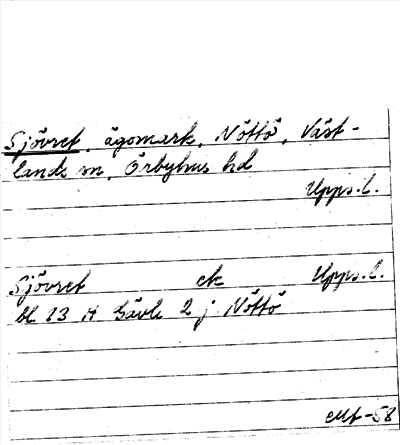 Sjövret, ägomark, Nöttö, Väst-
lands sn, Örbyhus hd
Upps. l.
Sjövret ek Upps. l.
bl 13 H Gävle 2 j Nöttö
-58